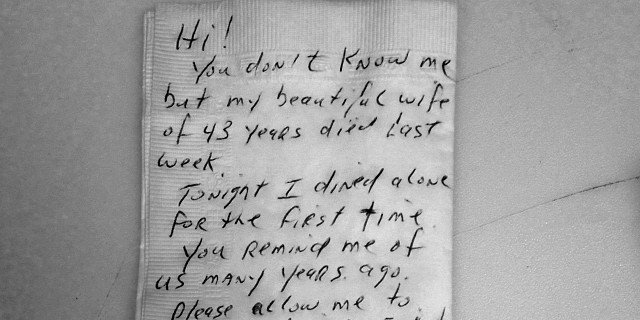 Hi!
You don't know me
but my beautiful wife
of 43 years died last
week.
Tonight I dined alone
for the first time.
You remind me of
us many years ago.
Please allow me to